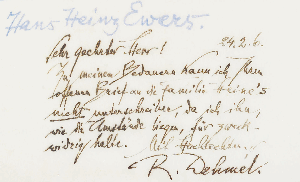 Hans Heinz Ewers.
24.2.6.
Sehr geehrter Herr!
Zu meinem Bedauern kann ich Ihren
offenen Brief an die Familie Heine's
nicht unterschreiben, da ich ihn,
wie die Umstände liegen, für zweck-
widrig halte.
R. Dehmel.